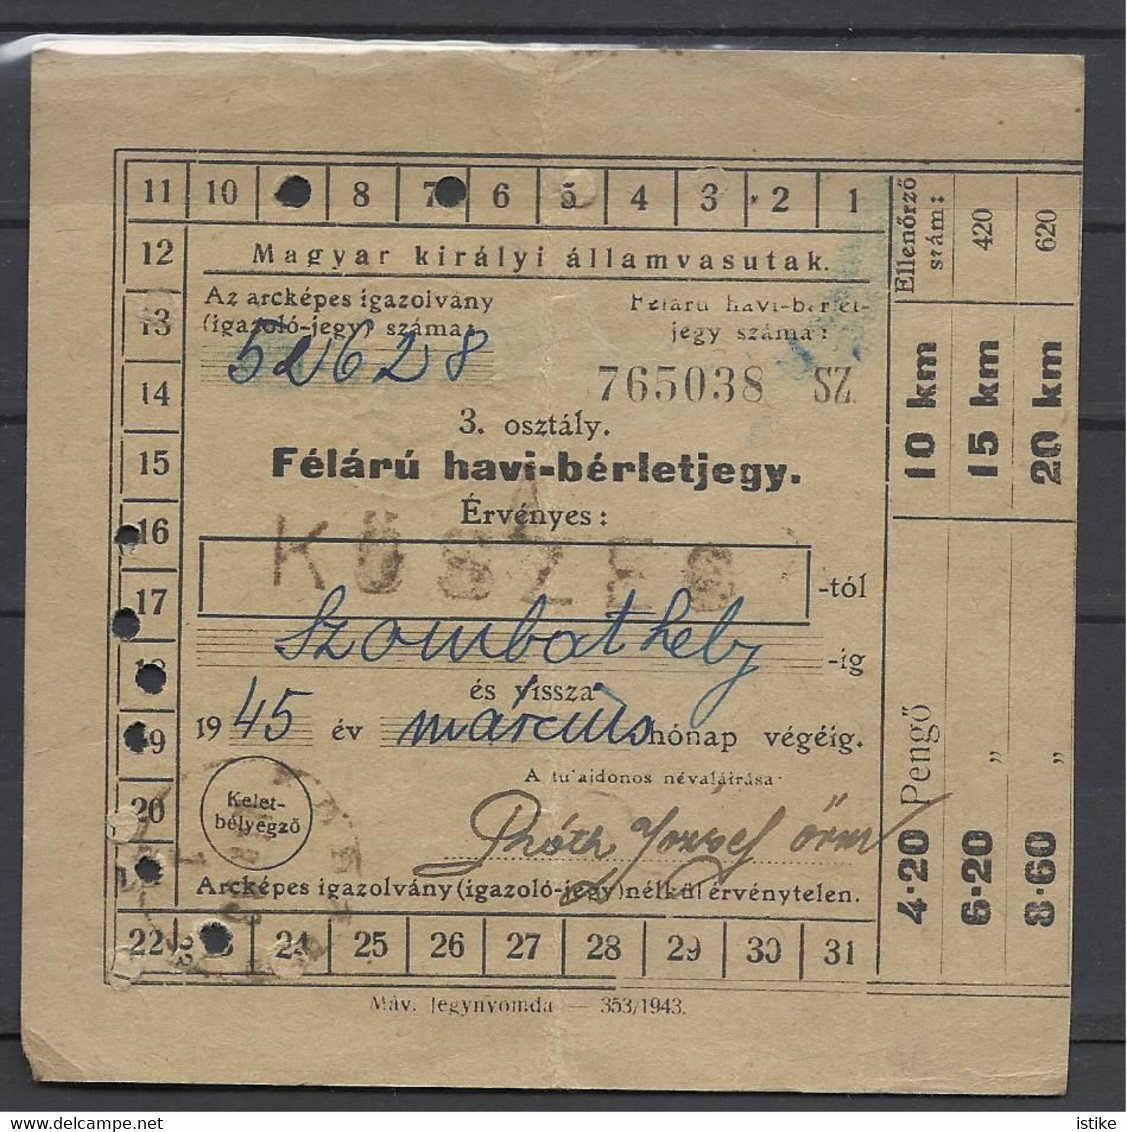 11 10 8 7 6 5 4 3 2 1
12
13
14
15
16
17
18
19
20
22 23 24 25 26 27 28 29 30 31
Magyar királyi államvasutak.
Az arcképes igazolvány
(igazoló-jegy) száma:
52628
Félárú havi-bérlet-
jegy száma:
765038 SZ
3. osztály.
Félárú havi-bérletjegy.
Érvényes:
KŐSZEG -tól
Szombathely -ig
és vissza
1945 év március hónap végéig.
A tulajdonos névaláírása
Kelet-
bélyegző
József őrm
Arcképes igazolvány (igazoló-jegy) nélkül érvénytelen.
Máv. Jegynyomda — 353/1943.
Ellenőrző
szám:
10 km
4·20 Pengő
420
15 km
6·20 „
620
20 km
8·60 „
istike